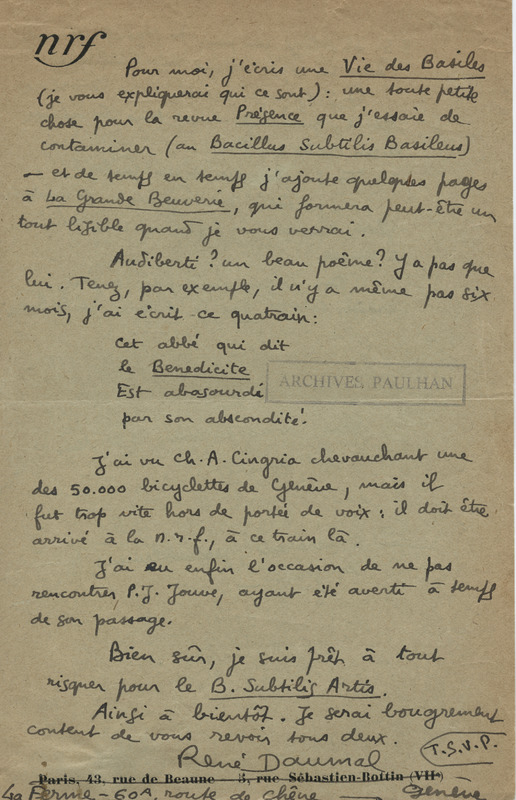 nrf
Pour moi, j'écris une Vie des Basiles
(je vous expliquerai qui ce sont) : une toute petite
chose pour la revue Présence que j'essaie de
contaminer (au Bacillus Subtilis Basileus)
— et de temps en temps j'ajoute quelques pages
à La Grande Beuverie, qui formera peut-être un
tout lisible quand je vous verrai.
Audiberti ? un beau poème ? Y a pas que
lui. Tenez, par exemple, il n'y a même pas six
mois, j'ai écrit ce quatrain :
Cet abbé qui dit
le Benedicite
Est abasourdi
par son abscondité.
ARCHIVES PAULHAN
J'ai vu Ch. A. Cingria chevauchant une
des 50.000 bicyclettes de Genève, mais il
fut trop vite hors de portée de voix ; il doit être
arrivé à la n.r.f., à ce train là.
J'ai eu enfin l'occasion de ne pas
rencontrer P. J. Jouve, ayant été averti à temps
de son passage.
Bien sûr, je suis prêt à tout
risquer pour le B. Subtilis Artis.
Ainsi à bientôt. Je serai bougrement
content de vous revoir tous deux.
T.S.V.P.
René Daumal
Paris, 43, rue de Beaune — 5, rue Sébastien-Bottin (VIIe)
La Ferme - 60A, route de Chêne — Genève